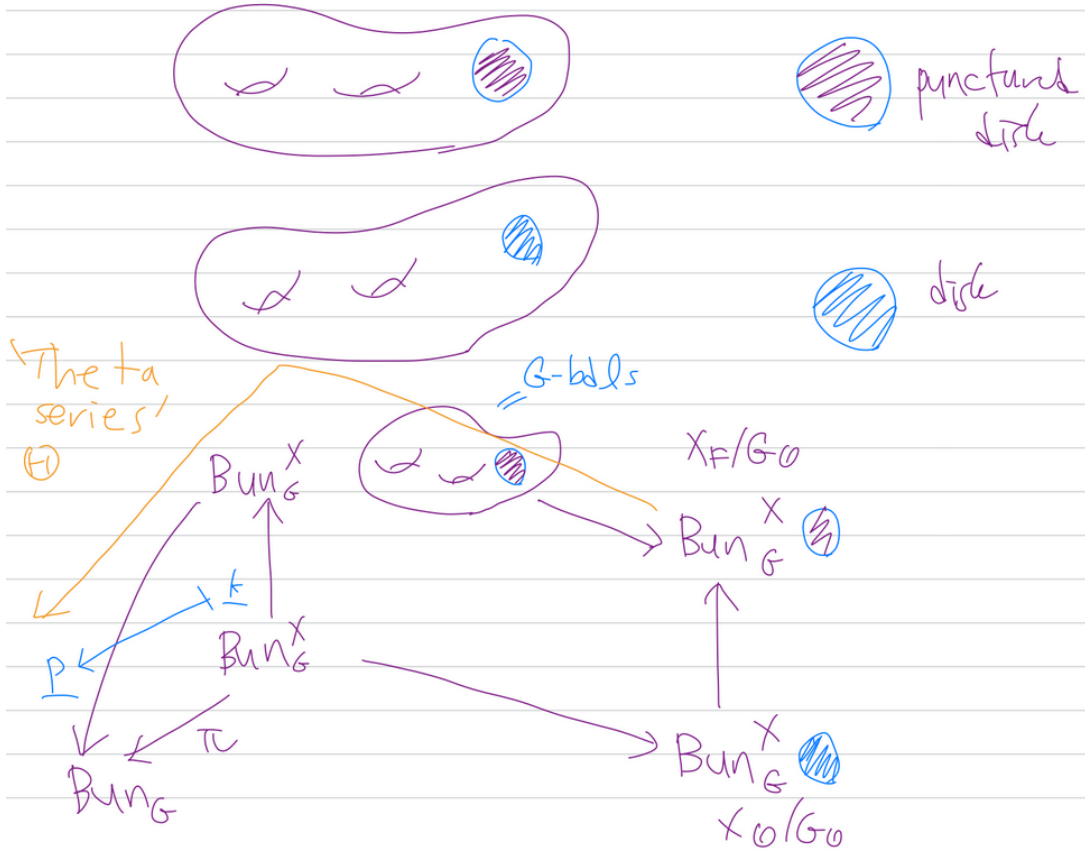 punctured
disk
disk
'Theta
series'
Θ
G-bdls
Bun_G^X
X_F/G_O
Bun_G^X
k
P
Bun_G^X
π
Bun_G
Bun_G^X
X_O/G_O